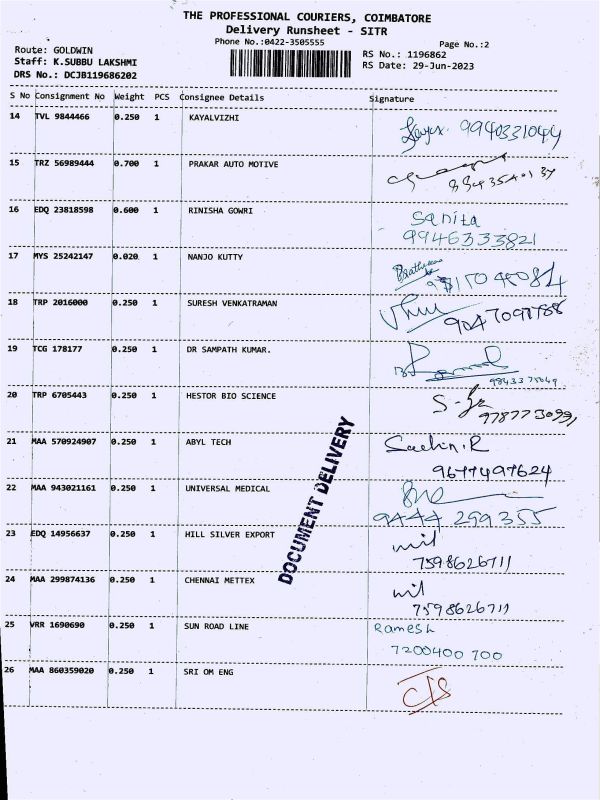 THE PROFESSIONAL COURIERS, COIMBATORE
Delivery Runsheet - SITR
Phone No.:0422-3505555
Page No.:2
Route: GOLDWIN
RS No.: 1196862
Staff: K.SUBBU LAKSHMI
RS Date: 29-Jun-2023
DRS No.: DCJB119686202
S No Consignment No Weight PCS Consignee Details Signature
14 TVL 9844466 0.250 1 KAYALVIZHI
9940331044
15 TRZ 56989444 0.700 1 PRAKAR AUTO MOTIVE
16 EDQ 23818598 0.600 1 RINISHA GOWRI Sanita
9946333821
17 MYS 25242147 0.020 1 NANJO KUTTY
18 TRP 2016000 0.250 1 SURESH VENKATRAMAN
19 TCG 178177 0.250 1 DR SAMPATH KUMAR.
9843375049
20 TRP 6705443 0.250 1 HESTOR BIO SCIENCE
21 MAA 570924907 0.250 1 ABYL TECH Sachin.R
9677497624
22 MAA 943021161 0.250 1 UNIVERSAL MEDICAL
9444 299355
23 EDQ 14956637 0.250 1 HILL SILVER EXPORT
7598626711
24 MAA 299874136 0.250 1 CHENNAI METTEX
7598626711
25 VRR 1690690 0.250 1 SUN ROAD LINE Ramesh
7200400 700
26 MAA 860359020 0.250 1 SRI OM ENG
DOCUMENT DELIVERY